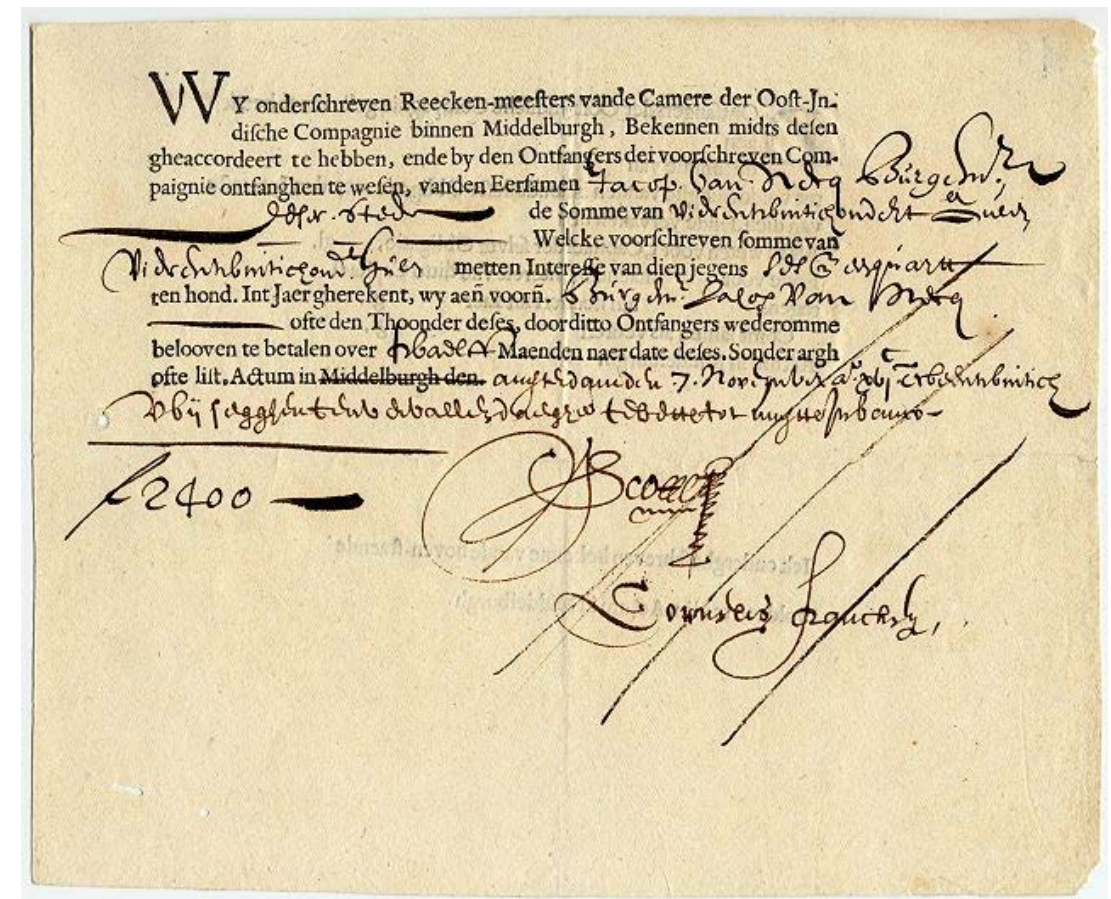 WY onderſchreven Reecken-meeſters vande Camere der Ooſt-Jn-
diſche Compagnie binnen Middelburgh, Bekennen midts deſen
gheaccordeert te hebben, ende by den Ontfangers der voorſchreven Com-
paignie ontfanghen te weſen, vanden Eerſamen Jacop van Neeq Burgemr
deser stede de Somme van vierentwintichondert guld
Welcke voorſchreven ſomme van
vierentwintichondt guld metten Intereſſe van dien jegens ses
ten hond. Int Jaer gherekent, wy aen̄ voorn̄. Burgemr Jacop van Neeq
ofte den Thoonder deſes, door ditto Ontfangers wederomme
belooven te betalen over twaelff Maenden naer date deſes. Sonder argh
ofte liſt. Actum in Middelburgh den. 7. November
ƒ2400